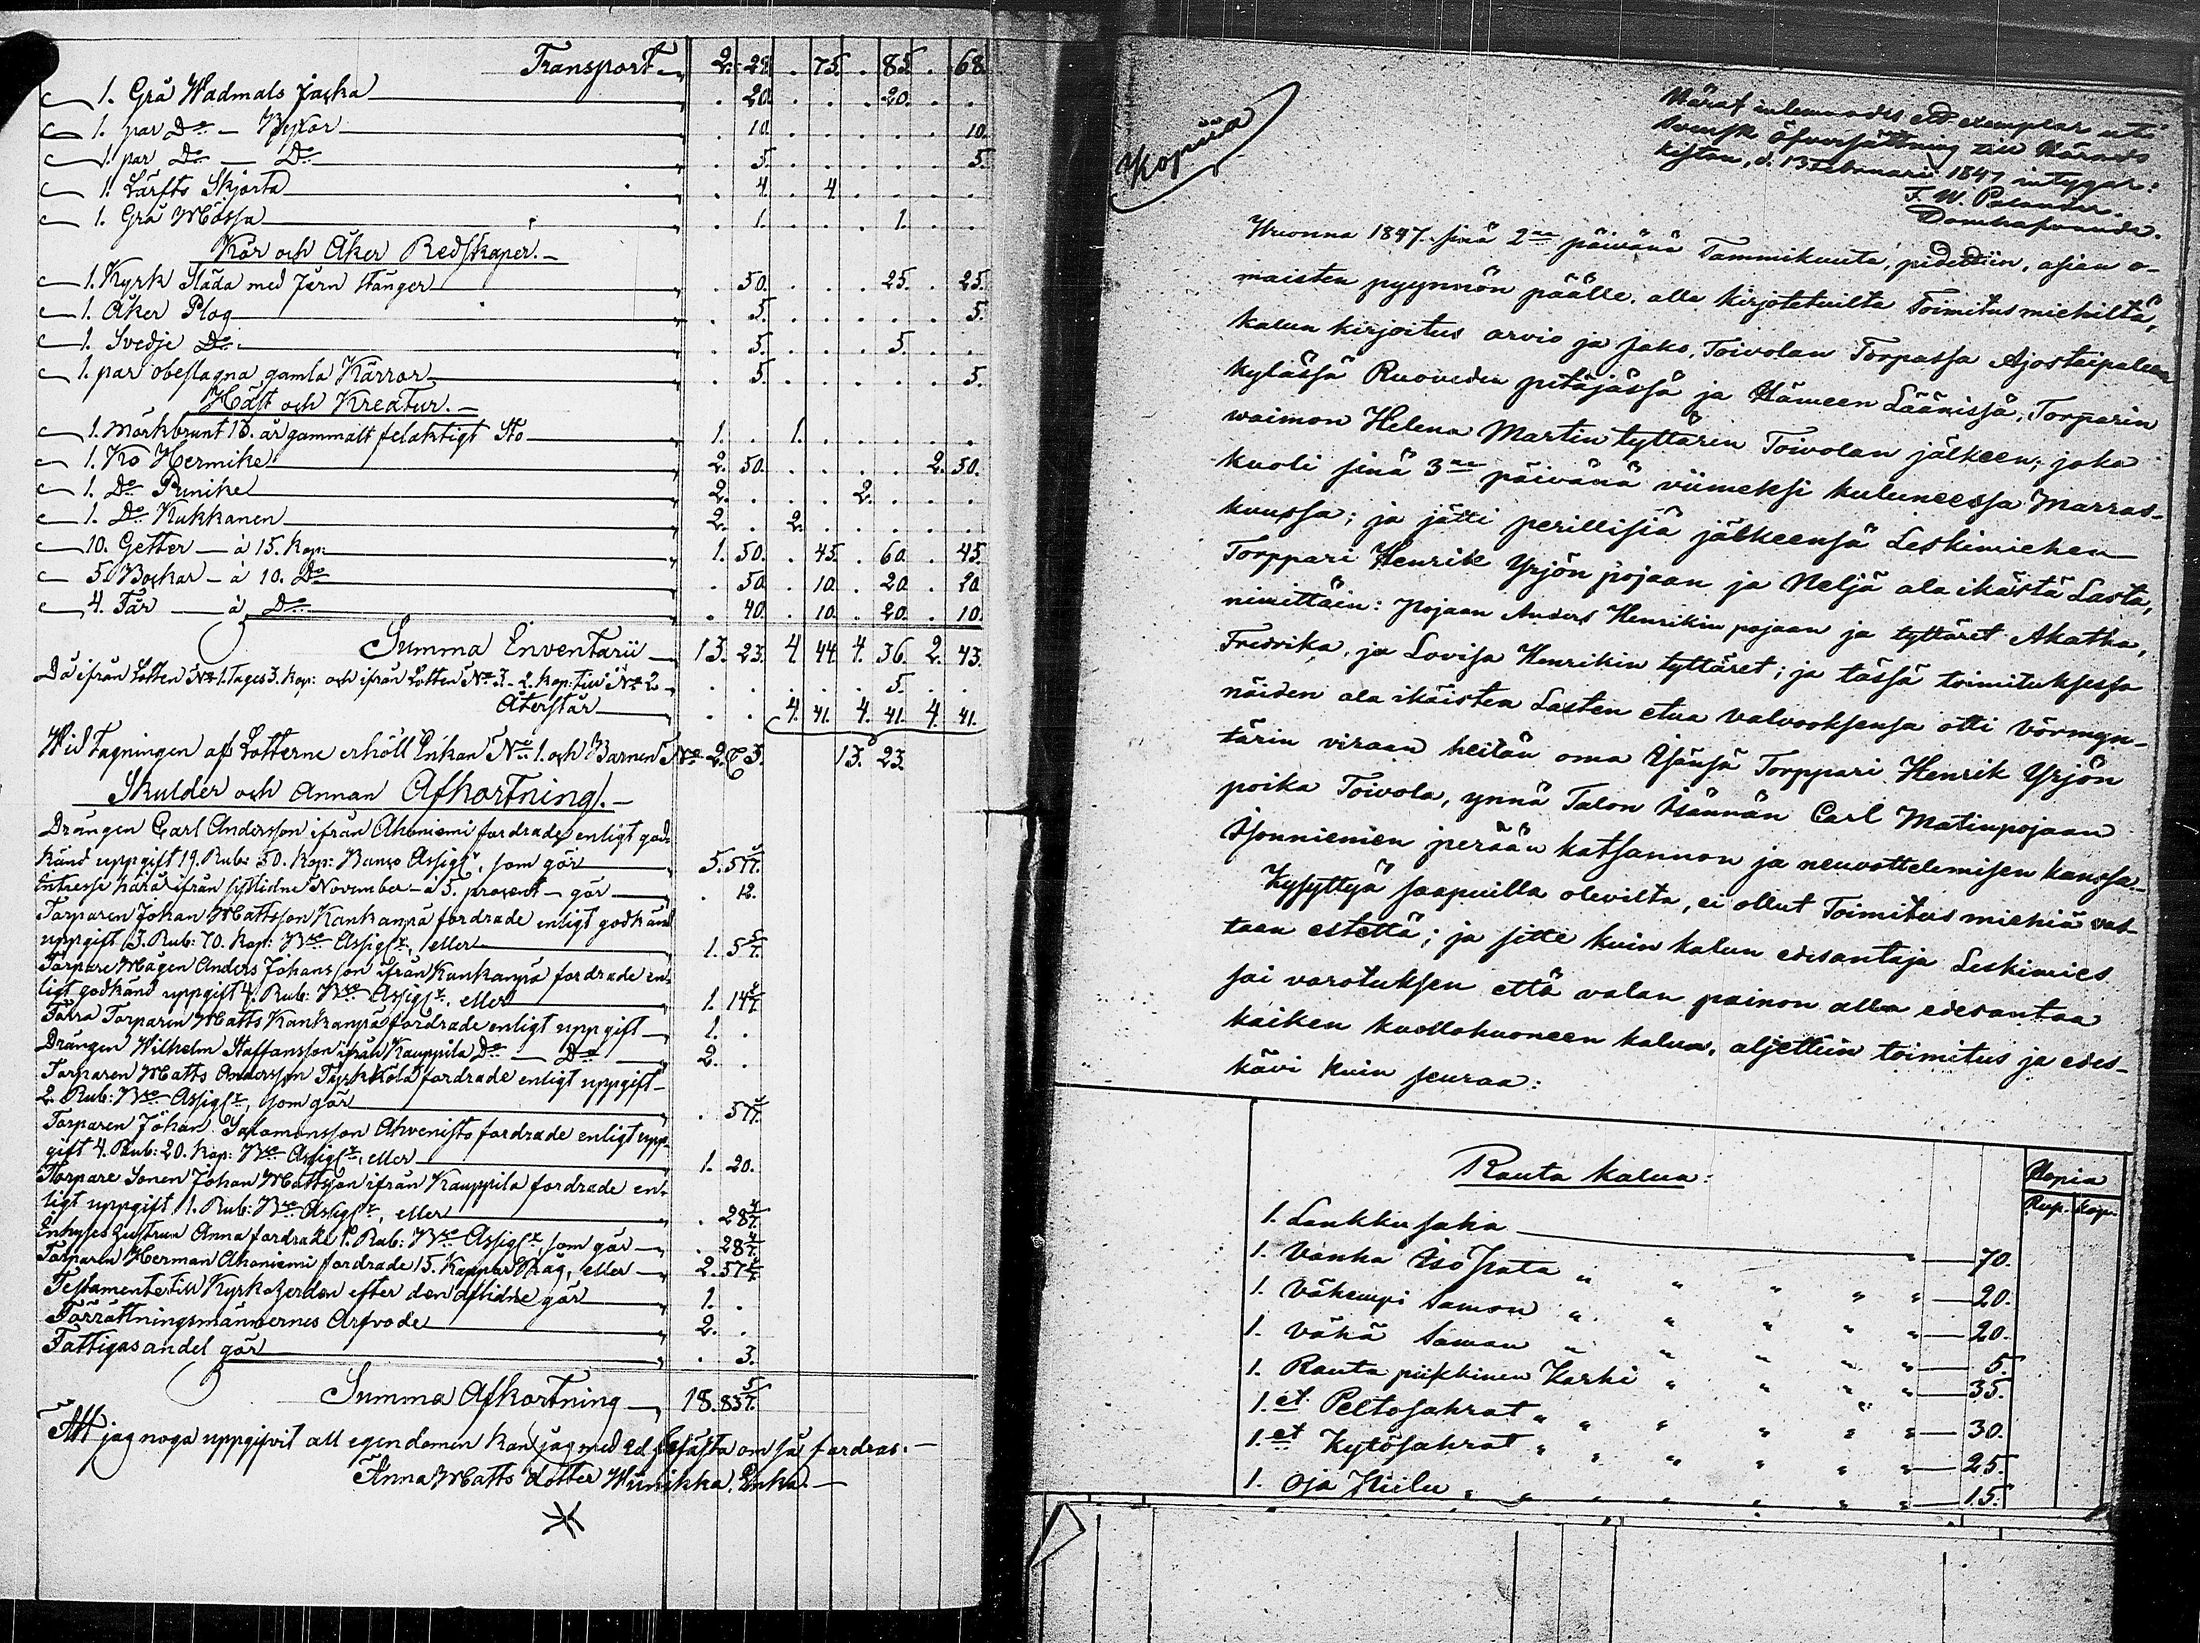 Transport 2. 29. . 75. . 85. . 68.
1. Grå Wadmals Jacka . 20. . . . 20. . .
1. par Do Byxor . 10. . . . . . 10.
1. par Do Do . 5. . . . . . 5.
1. Lärfts Skjorta . 4. . 4. . . . .
1. Grå Mössa . 1. . . . 1. . .
Kör och Åker Redskaper.
1. Kyrk Släda med Jern Stänger . 50. . . . 25. . 25.
1. Åker Plog . 5. . . . . . 5.
1. Svedje Do . 5. . . . 5. . .
1. par obeslagna gamla Kärror . 5. . . . . . 5.
Häst och Kreatur.
1. Mörkbrunt 16. år gammalt felaktigt Sto 1. . 1. . . . . .
1. Ko Hermike 2. 50. . . . . 2. 50.
1. Do Punike 2. . . . 2. . . .
1. Do Kukkanen 2. . 2. . . . . .
10. Getter à 15. Kop: 1. 50. . 45. . 60. . 45.
5. Bockar à 10. Do . 50. . 10. . 20. . 20.
4. Får à Do . 40. . 10. . 20. . 10.
Summa Inventarii 13. 23. 4. 44. 4. 36. 2. 43.
Då ifrån Lotten No 1. tages 3. Kop: och ifrån Lotten No 3. 2. Kop: till No 2 . . . . . 5. . .
Återstår . . 4. 41. 4. 41. 4. 41.
Wid Tagningen af Lotterne erhöll Enkan No 1. och Barnen No 2. & 3. 13. 23.
Skulder och Annan Afkortning.
Drängen Carl Andersson ifrån Ahoniemi fordrade enligt god-
känd uppgift 19. Rub: 50. Kop: Banco Assigt, som gör 5. 57 1/7.
Intresse härå ifrån sistlidne November à 5. procent gör . 12.
Torparen Johan Mattsson Kankanpä fordrade enligt godkänd
uppgift 3. Rub: 70. Kop: Bco Assigt, eller 1. 5 5/7.
Torpare Mågen Anders Johansson ifrån Kankanpä fordrade en-
ligt godkänd uppgift 4. Rub: Bco Assigt, eller 1. 14 2/7.
Förra Torparen Matts Kankanpä fordrade enligt uppgift 1. .
Drängen Wilhelm Staffansson ifrån Kauppila Do Do 2. .
Torparen Matts Andersson Tyrkkölä fordrade enligt uppgift
2. Rub: Bco Assigt, som gör . 57 1/7.
Torparen Johan Salomonsson Ahvenisto fordrade enligt upp-
gift 4. Rub: 20. Kop: Bco Assigt, eller 1. 20.
Torpare Sonen Johan Mattsson ifrån Kauppila fordrade en-
ligt uppgift 1. Rub: Bco Assigt, eller . 28 4/7.
Inhyses Hustrun Anna fordrade 1. Rub: Bco Assigt, som gör . 28 4/7.
Torparen Herman Ahoniemi fordrade 15. Kappar Råg, eller 2. 57 1/7.
Testamente till Kyrkoherden efter den aflidne gör 1. .
Förrättningsmännernes Arfvode 2. .
Fattigas andel gör . 3.
Summa Afkortning 18. 83 5/7.
Att jag noga uppgifvit all egendomen kan jag med ed fästa om så fordras.
Anna Matts dotter Enka.
Kopiia
Häraf inlemnades ett exemplar uti
Svensk öfversättning till Härads
kistan, d. 13 Februarii 1847 intygar:
F. W. Palander.
Domhafvande.
Wuonna 1847. sinä 2na päivänä Tammikuuta, pidettiin, asian o-
maisten pyynnön päälle, alla kirjotetuilta Toimitusmiehiltä,
kalun kirjoitus arvio ja jako, Toivolan Torpassa Ajostaipaleen
kylässä Ruoveden pitäjässä ja Hämeen Läänissä, Torparin
waimon Helena Martin tyttärin Toivolan jälkeen; joka
kuoli sinä 3na päivänä viimeksi kuluneessa Marras-
kuussa; ja jätti perillisiä jälkeensä Leskimiehen
Torppari Henrik Yrjön pojaan ja Neljä ala ikästä Lasta,
nimittäin: pojaan Anders Henrikin pojaan ja tyttäret Akatha,
Fredrika, ja Lovisa Henrikin tyttäret; ja tässä toimituksessa
näiden ala ikäisten Lasten etua valvooksensa otti vörmyn-
tärin viraan heitän oma Isänsä Torppari Henrik Yrjön
poika Toivola, ynnä Talon Isännän Carl Matinpojaan
Isonniemien perään katsannon ja neuvottelemisen kanssa.
Kysyttyä saapuilla olevilta, ei ollut Toimitus miehiä vas-
taan estettä; ja sitte kuin kalun edesantaja Leskimies
sai varotuksen että valan painon alla edesantaa
kaiken kuollohuoneen kalun, aljettiin toimitus ja edes-
kävi kuin seuraa:
Rauta kalua: Hopia
Rup. Kop.
1. Linkkusaha 70.
1. Vanha Iso Pata " " " " " 20.
1. Vähempi Samon " " " " " 20.
1. Vähä Saman " " " " " 5.
1. Rauta piikkinen Karhi " " " " 35.
1. et Peltosahrat " " " " " " 30.
1. et Kytösahrat " " " " " " 25.
1. Oja Kiilu " " " " " " 15.